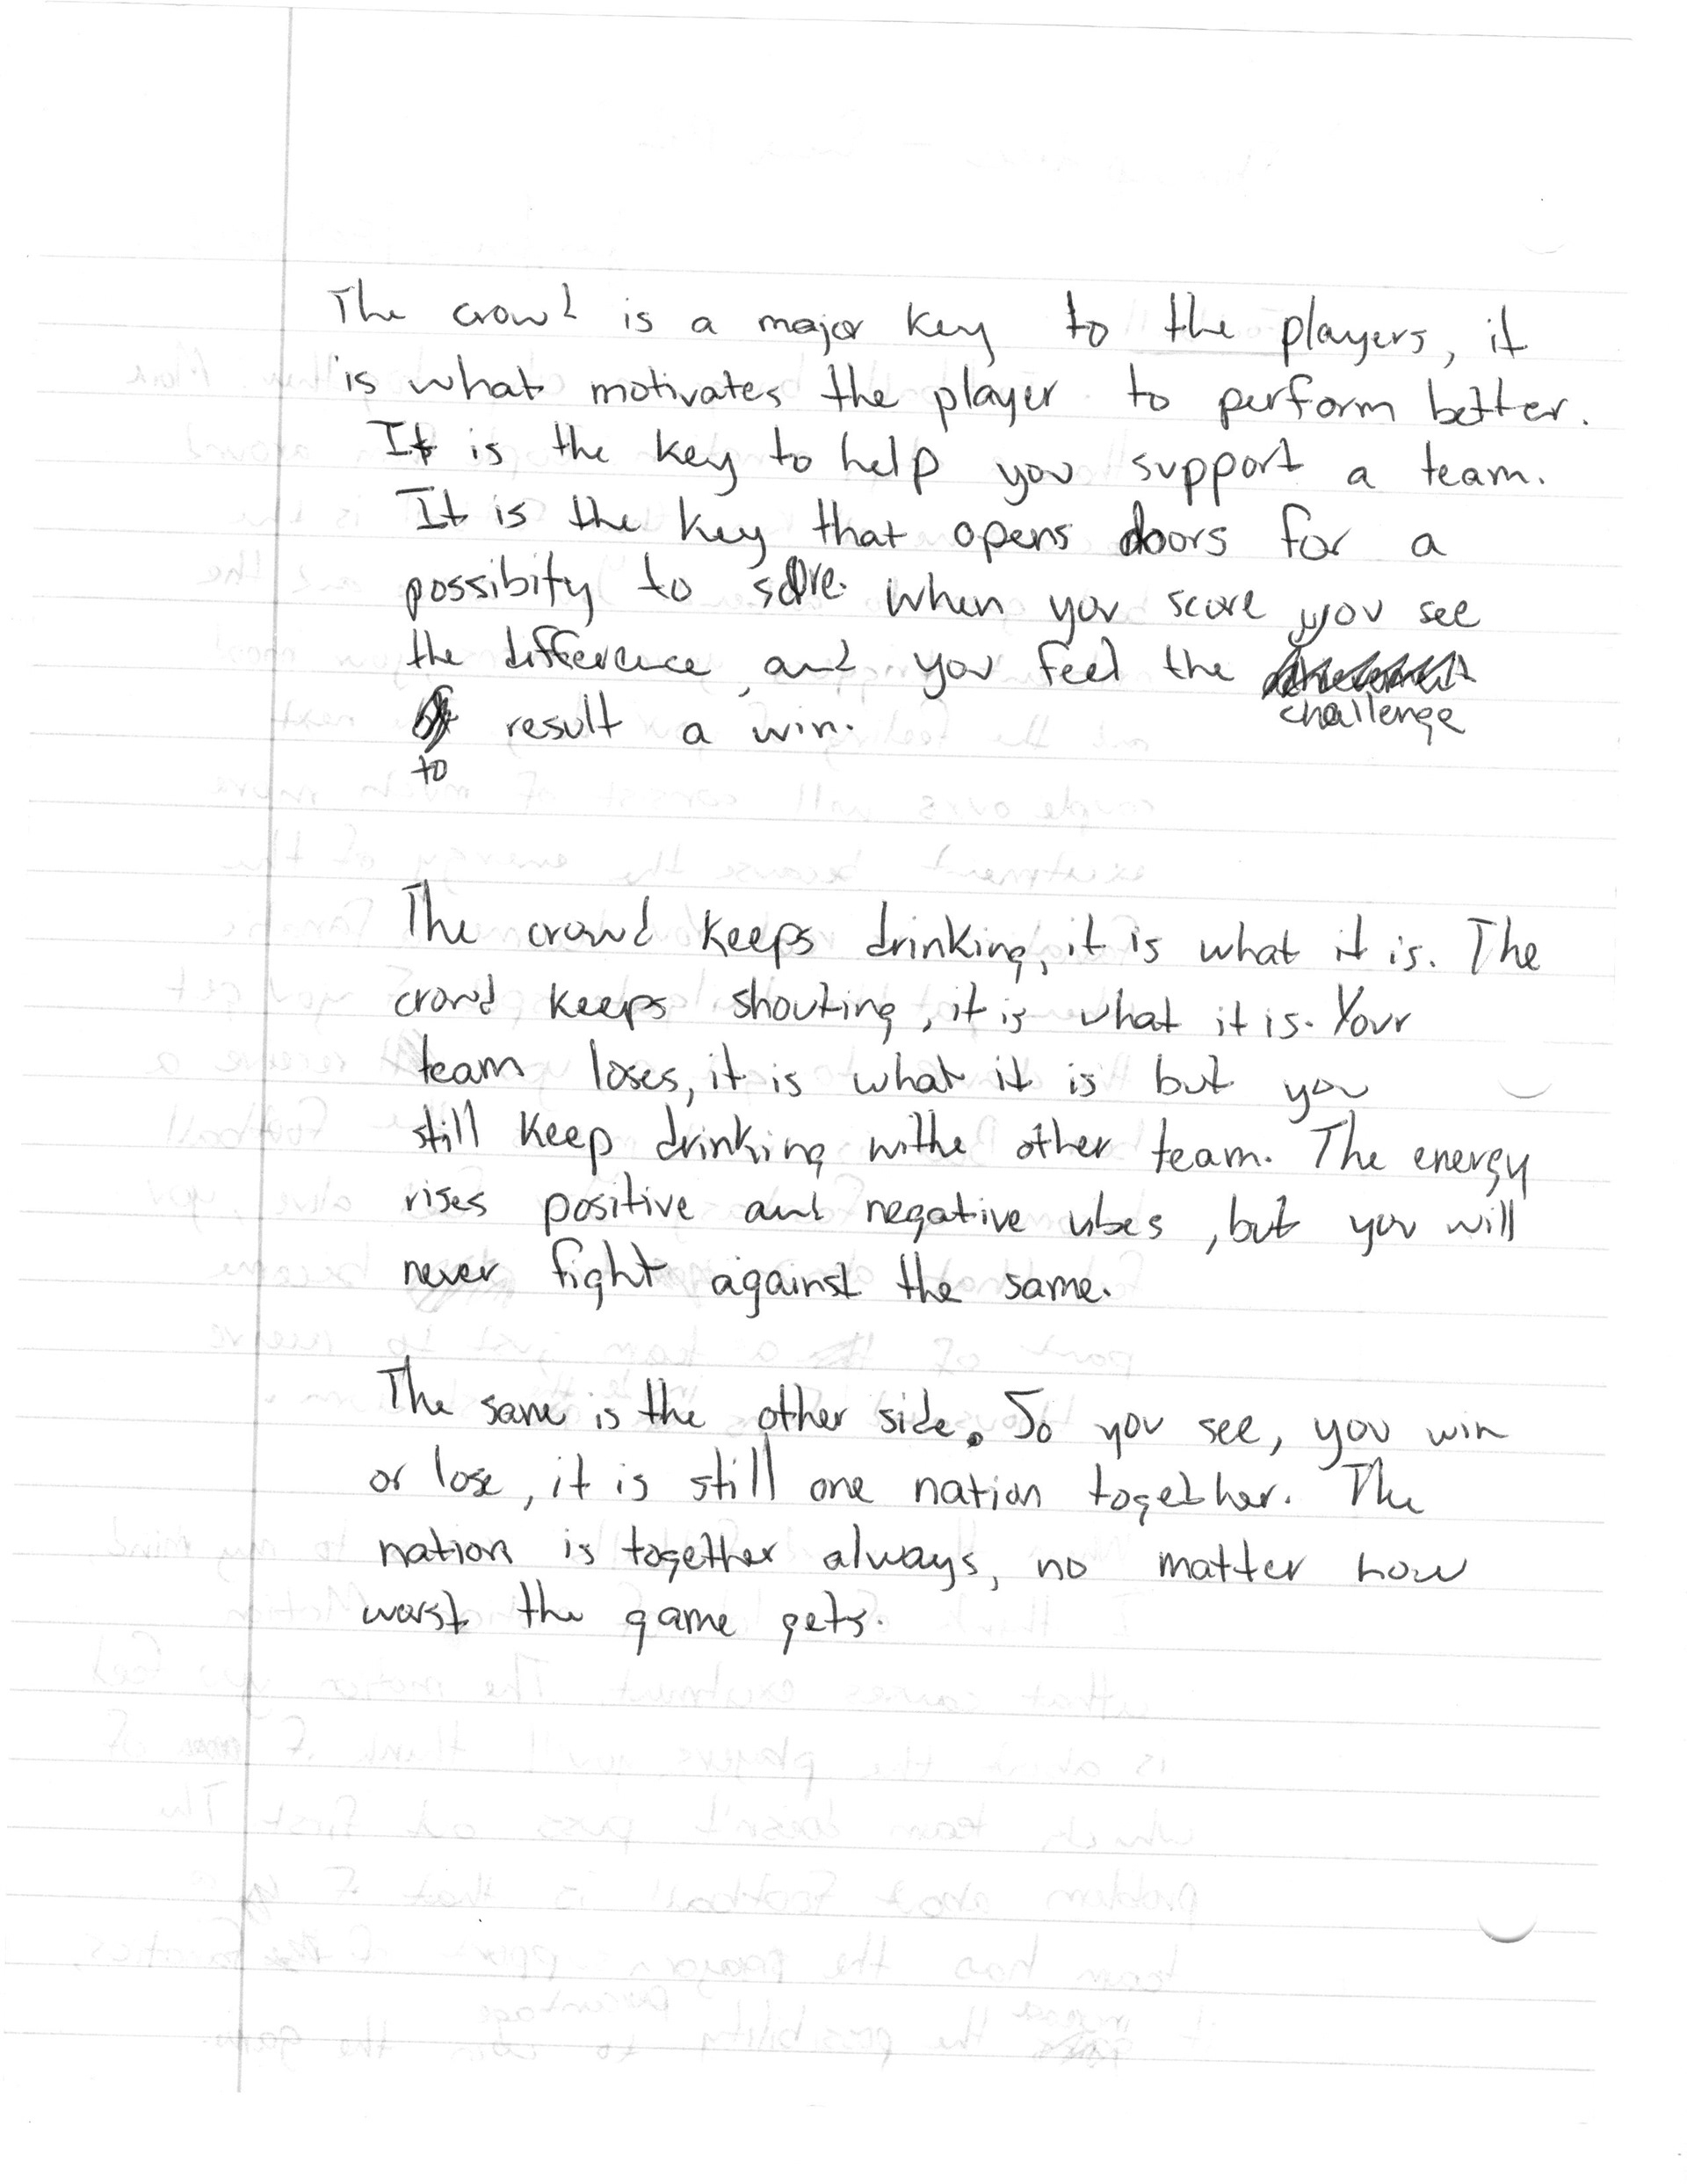 The crowd is a major key to the players, it
is what motivates the player to perform better.
It is the key to help you support a team.
It is the key that opens doors for a
possibity to solve. When you score you see
the difference, and you feel the
challenge
result a win.
to
The crowd keeps drinking, it is what it is. The
crowd keeps shouting, it is what it is. Your
team loses, it is what it is but you
still keep drinking withe other team. The energy
rises positive and negative vibes, but you will
never fight against the same.
The same is the other side. So you see, you win
or lose, it is still one nation together. The
nation is together always, no matter how
worst the game gets.